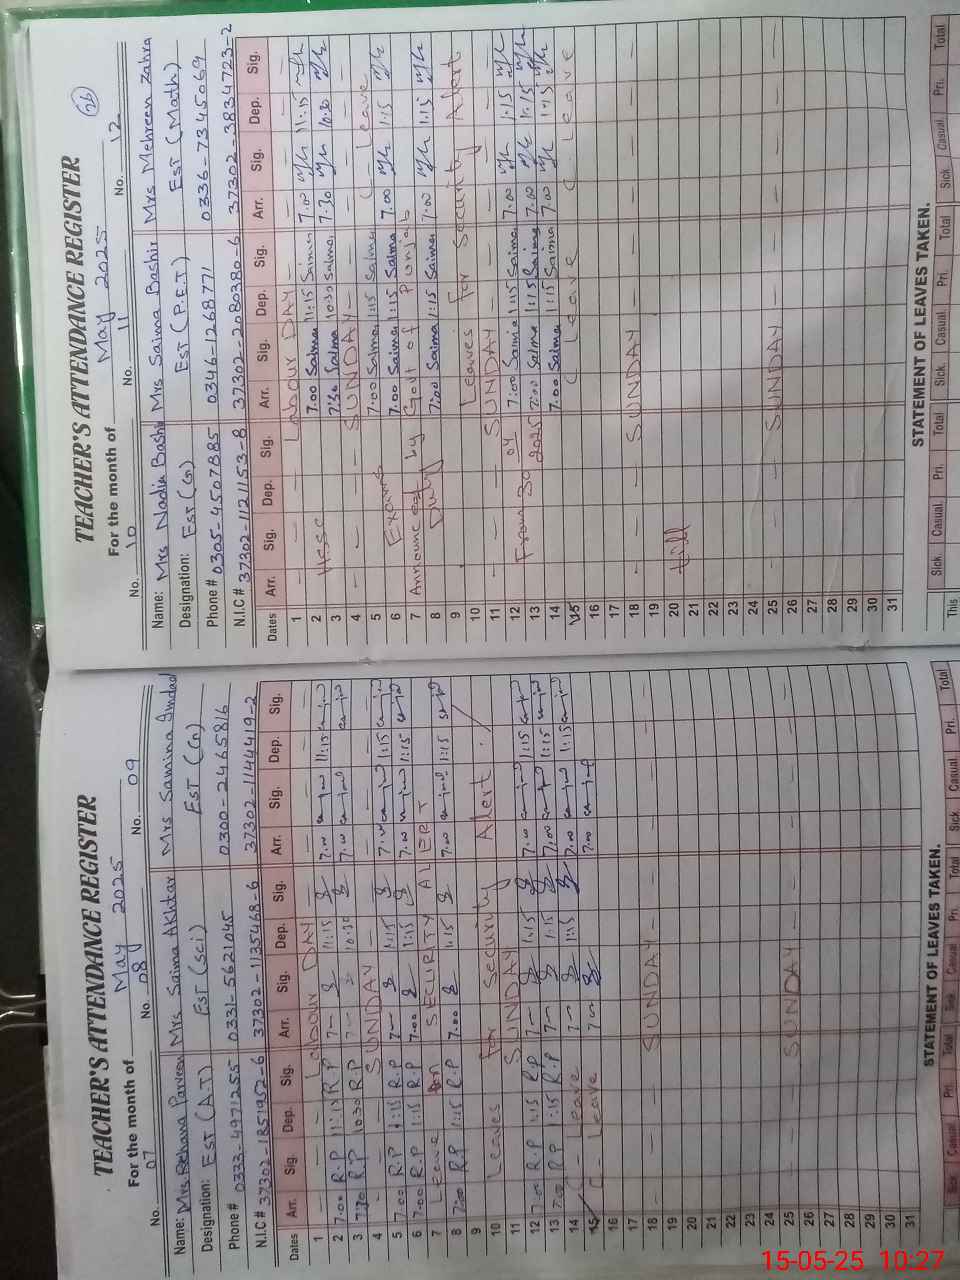 TEACHER'S ATTENDANCE REGISTER
For the month of May 2025
No. 07 No. 08 No. 09
Name: Mrs Rehana Parveen Mrs Saima Akhtar Mrs Samina Imdad
Designation: EST (A.T) EST (Sci) EST (G)
Phone # 0333-4971255 0331-5621045 0300-2465816
N.I.C # 37302-1851952-6 37302-1135468-6 37302-1144419-2
Dates Arr. Sig. Dep. Sig. Arr. Sig. Dep. Sig. Arr. Sig. Dep. Sig.
1 — — — Labour DAY — — —
2 7.00 R.P 11:15 R.P 11:15 7.00 11:15
3 7:30 R.P 10.30 R.P 10.30 7.00
4 — — — SUNDAY — — —
5 7.00 R.P 1:15 R.P 1:15 7.00 1:15
6 7.00 R.P 1:15 R.P 7.00 1:15 7.00 1:15
7 Leave SECURITY ALERT
8 7:00 R.P 1:15 R.P 7.00 1:15 7.00 1:15
9
10 Leaves for Security Alert
11 SUNDAY
12 7:00 R.P 1:15 R.P 1:15 7.00 1:15
13 7:00 R.P 1:15 R.P 1:15 7.00 1:15
14 C - Leave 1:15 7.00 1:15
15 C - Leave 7.00
16
17
18 — — — SUNDAY — — —
19
20
21
22
23
24
25 — — — SUNDAY — — —
26
27
28
29
30
31
STATEMENT OF LEAVES TAKEN.
Sick Casual Pri. Total Sick Casual Pri. Total Sick. Casual Pri. Total
26
TEACHER'S ATTENDANCE REGISTER
For the month of May 2025
No. 10 No. 11 No. 12
Name: Mrs Nadia Bashir Mrs Saima Bashir Mrs Mehreen Zahra
Designation: EST (G) EST (P.E.T) EST (Math)
Phone # 0305-4507885 0346-1268771 0336-7345069
N.I.C # 37302-1121153-8 37302-2080380-6 37302-3834723-2
Dates Arr. Sig. Dep. Sig. Arr. Sig. Dep. Sig. Arr. Sig. Dep. Sig.
1 — — — Labour DAY — — — —
2 HSSC 7.00 Saima 11:15 Saima 7.00 11:15
3 7:30 Saima 10:30 Saima 7.30 10.30
4 — — — SUNDAY — — — —
5 Exams 7:00 Saima 1:15 Saima C - Leave
6 7.00 Saima 1:15 Saima 7.00 1:15
7 Announced by Govt of Punjab
8 Duty 7:00 Saima 1:15 Saima 7.00 1.15
9
10 Leaves for Security Alert
11 — — — SUNDAY — — — —
12 From 30 04 2025 7:00 Saima 1:15 Saima 7.00 1:15
13 7:00 Saima 1:15 Saima 7.00 1:15
14 7.00 Saima 1:15 Saima 7.00 1:15
15 C Leave C Leave
16
17
18 — — — SUNDAY — — — —
19
20 till
21
22
23
24
25 — — — SUNDAY — — — —
26
27
28
29
30
31
STATEMENT OF LEAVES TAKEN.
Sick. Casual. Pri. Total Sick. Casual. Pri. Total Sick. Casual. Pri. Total
This
15-05-25 10:27